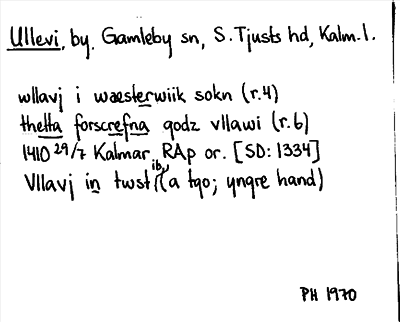 Ullevi, by, Gamleby sn, S. Tjusts hd, Kalm. l.
wllavj i waesterwiik sokn (r.4)
thetta forscrefna godz vllawi (r.6)
1410 29/7 Kalmar RAp or. [SD: 1334]
Vllavj in twst (ib, a tgo; yngre hand)
PH 1970